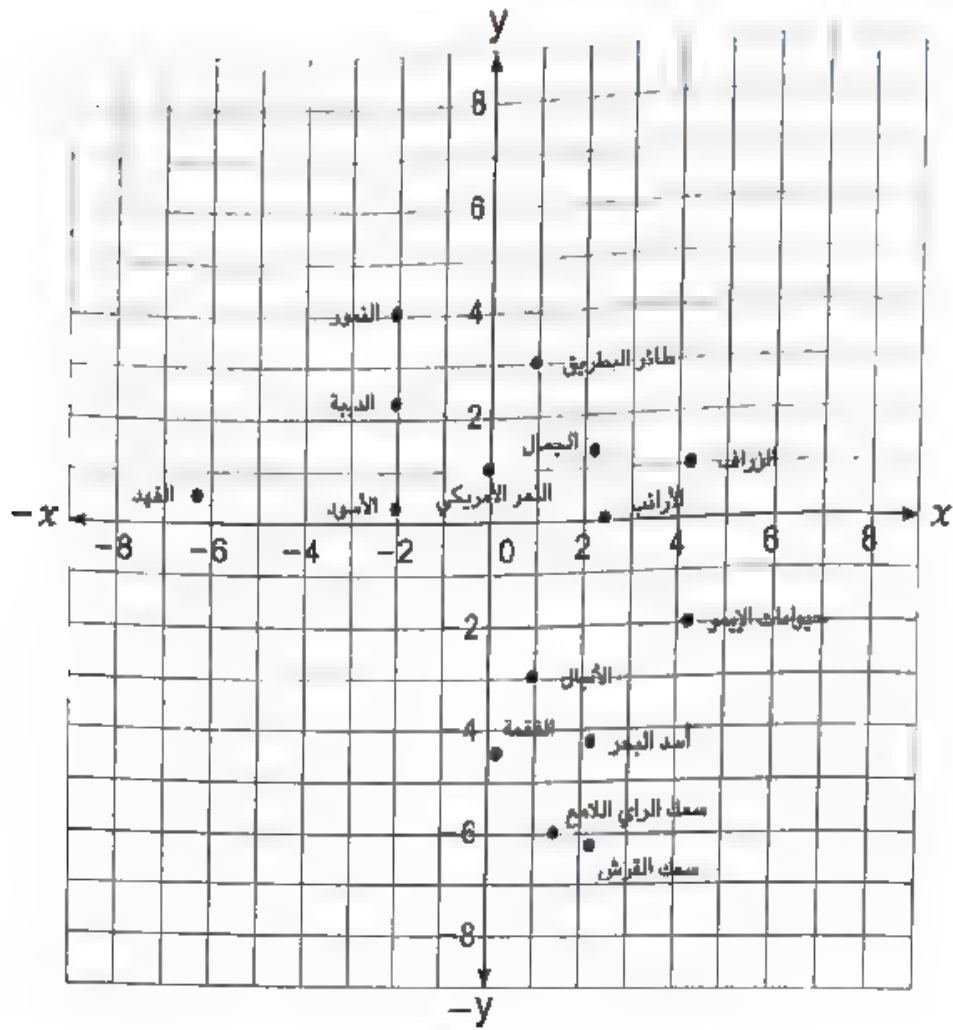 y
8
6
النمور
4
طائر البطريق
الدببة
2
الجمال
الزراف
الفهد
الأسود
النمر الأمريكي
الأرانب
-x
x
-8 -6 -4 -2 0 2 4 6 8
-2
حيوانات الإيمو
الأفيال
-4
الفقمة
أسد البحر
سمك الراي اللامع
-6
سمك القرش
-8
-y